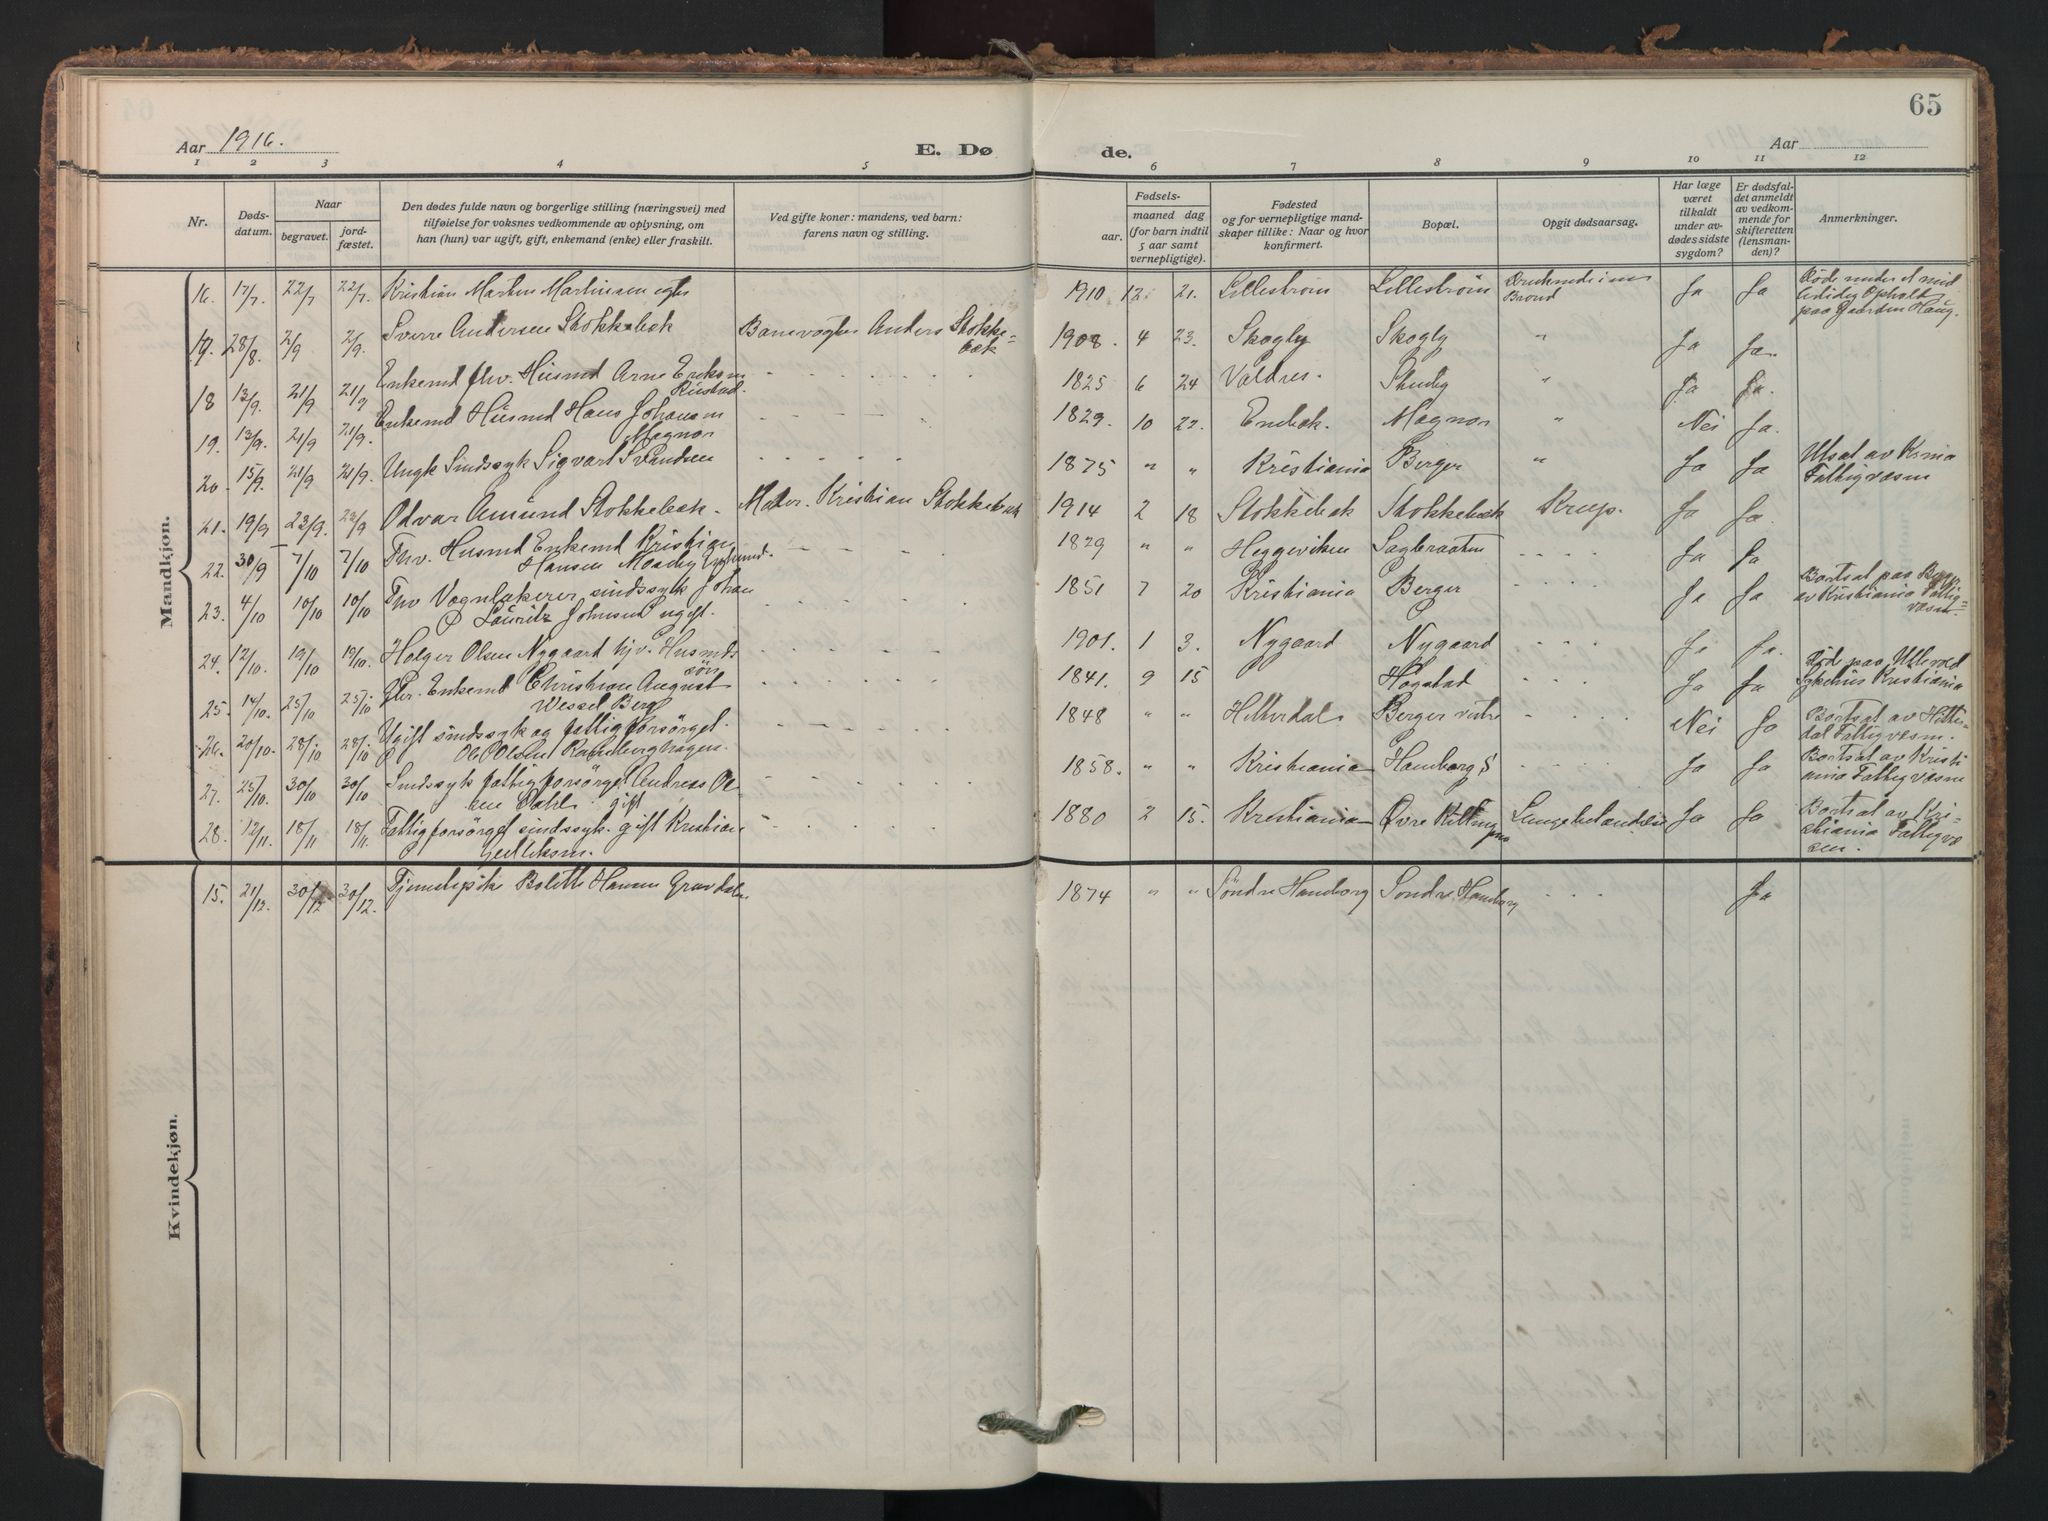 65
Aar 1916.
E. Dø
de.
Aar
1 2 3 4 5 6 7 8 9 10 11 12
Nr.
Døds-
datum.
Naar
begravet.
jord-
fæstet.
Den dødes fulde navn og borgerlige stilling (næringsvei) med
tilføielse for voksnes vedkommende av oplysning, om
han (hun) var ugift, gift, enkemand (enke) eller fraskilt.
Ved gifte koner: mandens, ved barn:
farens navn og stilling.
Fødsels-
aar.
maaned dag
(for barn indtil
5 aar samt
vernepligtige).
Fødested
og for vernepligtige mand-
skaper tillike: Naar og hvor
konfirmert.
Bopæl.
Opgit dødsaarsag.
Har læge
været
tilkaldt
under av-
dødes sidste
sygdom?
Er dødsfal-
det anmeldt
av vedkom-
mende for
skifteretten
(lensman-
den)?
Anmerkninger.
Mandkjøn.
16. 17/7. 22/7 22/7. Kristian Martin Martinsen 1910 12 21. Lillestrøm Lillestrøm Ja Ja Døde under et mid
lertidig Ophold
paa Gaarden Haug.
28/8. 2/9 2/9. Sverre Andersen Stokkebæk Banevogter Anders Stokke- 1908. 4 23. Skogly Skogly " Ja Ja.
bæk
18 13/9. 21/9 21/9 Enkemd fhv. Husmd Arne Eriksen 1825 6 24 Valdres. " Ja Ja.
Rustad.
19. 13/9. 21/9 21/9. Enkemd Husmd Hans Johansen 1829. 10 22. Enebak. Magnor " Nei Ja.
Magnor
20. 15/9. 21/9 21/9. Ungk Sindssyk Sigvart Svendsen 1875 " " Kristiania Berger " Ja Ja Utsat av Krnia
Fattigvæsen
21. 19/9 23/9. 23/9 Odvar Amund Stokkebæk. Kristian Stokkebæk 1914 2 18 Stokkebæk Stokkebæk Krup. Ja Ja.
22. 30/9 7/10 7/10 Fhv. Husmd Enkemd Kristian 1829 " " Heggeviken Sagbraaten Ja Ja
Hansen
23. 4/10 10/10 10/10 Fhv Vognlakerer sindssyk Johan 1851 7 20 Kristiania Berger Ja Ja Bortsat paa Berger
av Kristiania Fattig-
væsen.
Lauritz Johnsen ugift.
24. 12/10. 19/10 19/10. Holger Olsen Nygaard hjv. Husmds 1901. 1 3. Nygaard Nygaard Ja Ja.
søn
25. 14/10. 25/10 25/10 Enkemd Christian August 1841. 9 15 Høgstad Ja Ja Død paa Ullevold
Sykehus Kristiania
Wessel Berg
26. 20/10. 28/10 28/10 Ugift sindssyk og fattigforsørget. 1848 " " Hitterdal Berger vstre Nei Ja Bortsat av Hitter
dal Fattigvæsn.
Ole Olsen
27. 25/10. 30/10 30/10 Sindssyk fattigforsørget Andreas Ol 1858. " " Kristiania Hamborg S Ja Ja Bortsat av Kristi
ania Fattigvæsne
sen Dahl gift
28. 12/11. 18/11 18/11. Fattigforsørget sindssyk. gift Kristian 1880 2 15. Kristiania Øvre Killing Lungebetændelse Ja Ja Bortsat av Kri-
stiania Fattigvæ
sen.
Kvindekjøn.
15. 21/12. 30/12 30/12. Tjenestepike Bolette Hansen 1874 " " Søndre Hamborg Søndre Hamborg Ja